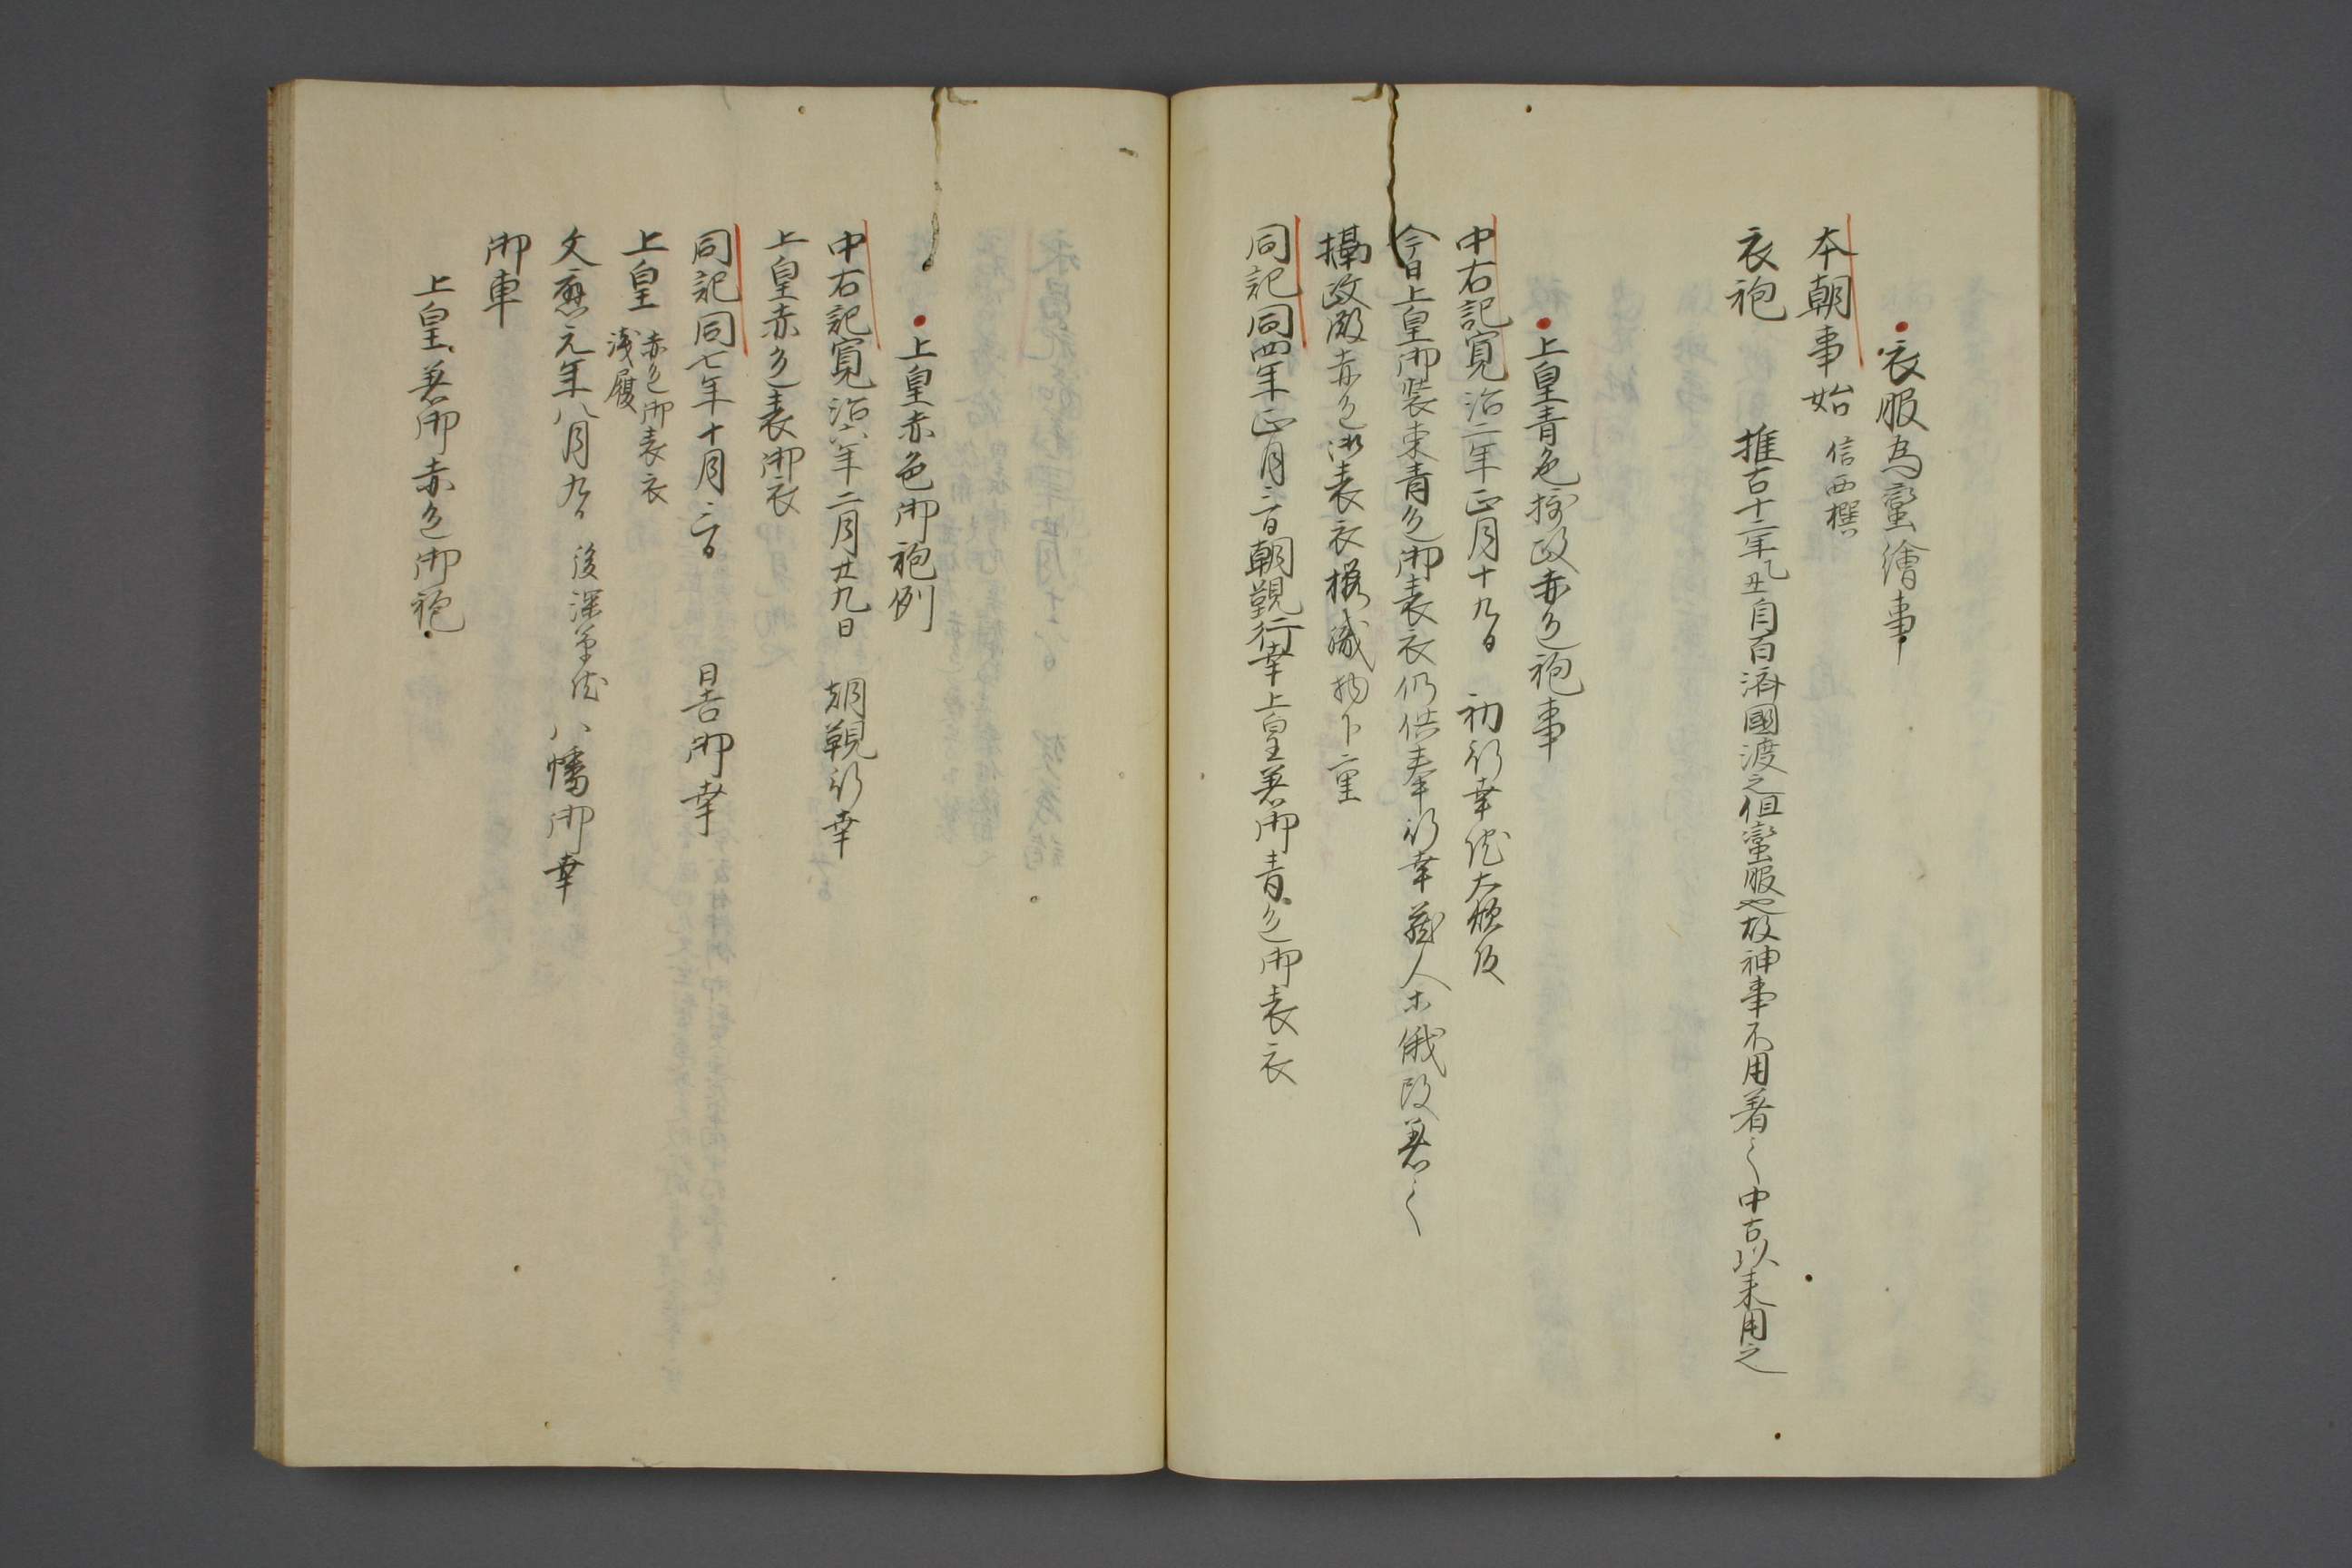 衣服為蠻繪事
本朝事始 信西撰
衣袍 推古十二年乙丑自百済國渡之但蠻服也故神事不用著之中古以来用之
上皇青色摂政赤色袍事
中右記寛治二年正月十九日 初行幸院大炊殿
今日上皇御装束青色御表衣仍供奉行幸蔵人木俄改着云
攝政殿赤色御表衣櫻織物下二重
同記同四年正月三日朝覲行幸上皇着御青色御表衣
上皇赤色御袍例
中右記寛治六年二月廿九日 朝覲行幸
上皇赤色表御衣
同記同七年十月三日 日吉御幸
上皇 赤色御表衣
浅履
文應元年八月九日 後深草院 八幡御幸
御車
上皇着御赤色御袍